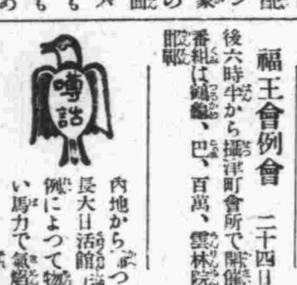 福王會例會　二十四日
後六時半から攝津町會所で開催
番組は鶴龜、巴、百萬、雲林院
邯鄲
噂話
內地から
長大日活館
例によつて物
い馬力で氣焰